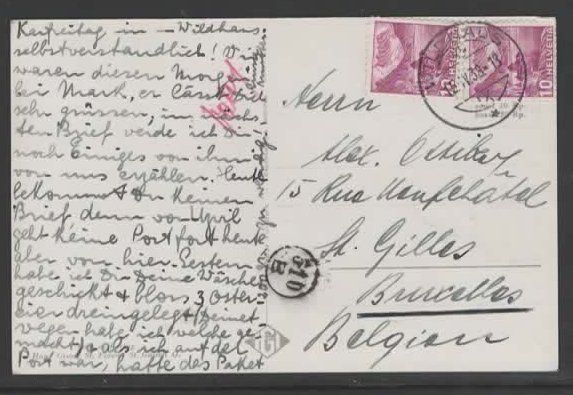 Karfreitag in – Wildhaus
selbstverständlich! Wir
waren diesen Morgen
bei Mark, er lässt Dich
sehr grüssen, im nächs-
ten Brief werde ich Dir
noch Einiges von ihm
von uns erzählen. Heute
bekommst Du keinen
Brief denn von
geht keine Post fort heute
aber von hier. Gestern
habe ich Dir Deine Wäsche
geschickt & blos 3 Oster-
eier dreingelegt (Deinet
wegen habe ich welche ge-
macht) & als ich auf der
Post war, hatte das Paket
HELVETIA
10
Herrn
Alex.
15 Rue Neufchatel
St. Gilles
Bruxelles
Belgien
510
B